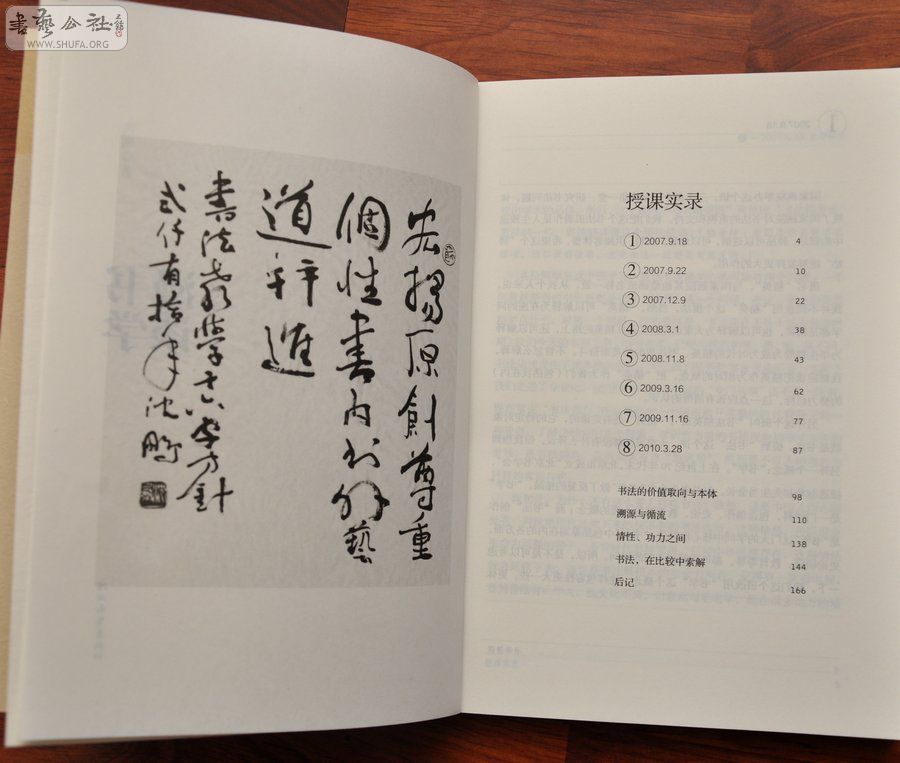 書藝公社
WWW.SHUFA.ORG
宏揚原創尊重
個性書内书外藝
道并進
書法教學十六字方針
弍仟有拾年沈鵬
授课实录
① 2007.9.18 4
② 2007.9.22 10
③ 2007.12.9 22
④ 2008.3.1 38
⑤ 2008.11.8 43
⑥ 2009.3.16 62
⑦ 2009.11.16 77
⑧ 2010.3.28 87
书法的价值取向与本体 98
溯源与循流 110
情性、功力之间 138
书法，在比较中索解 144
后记 166